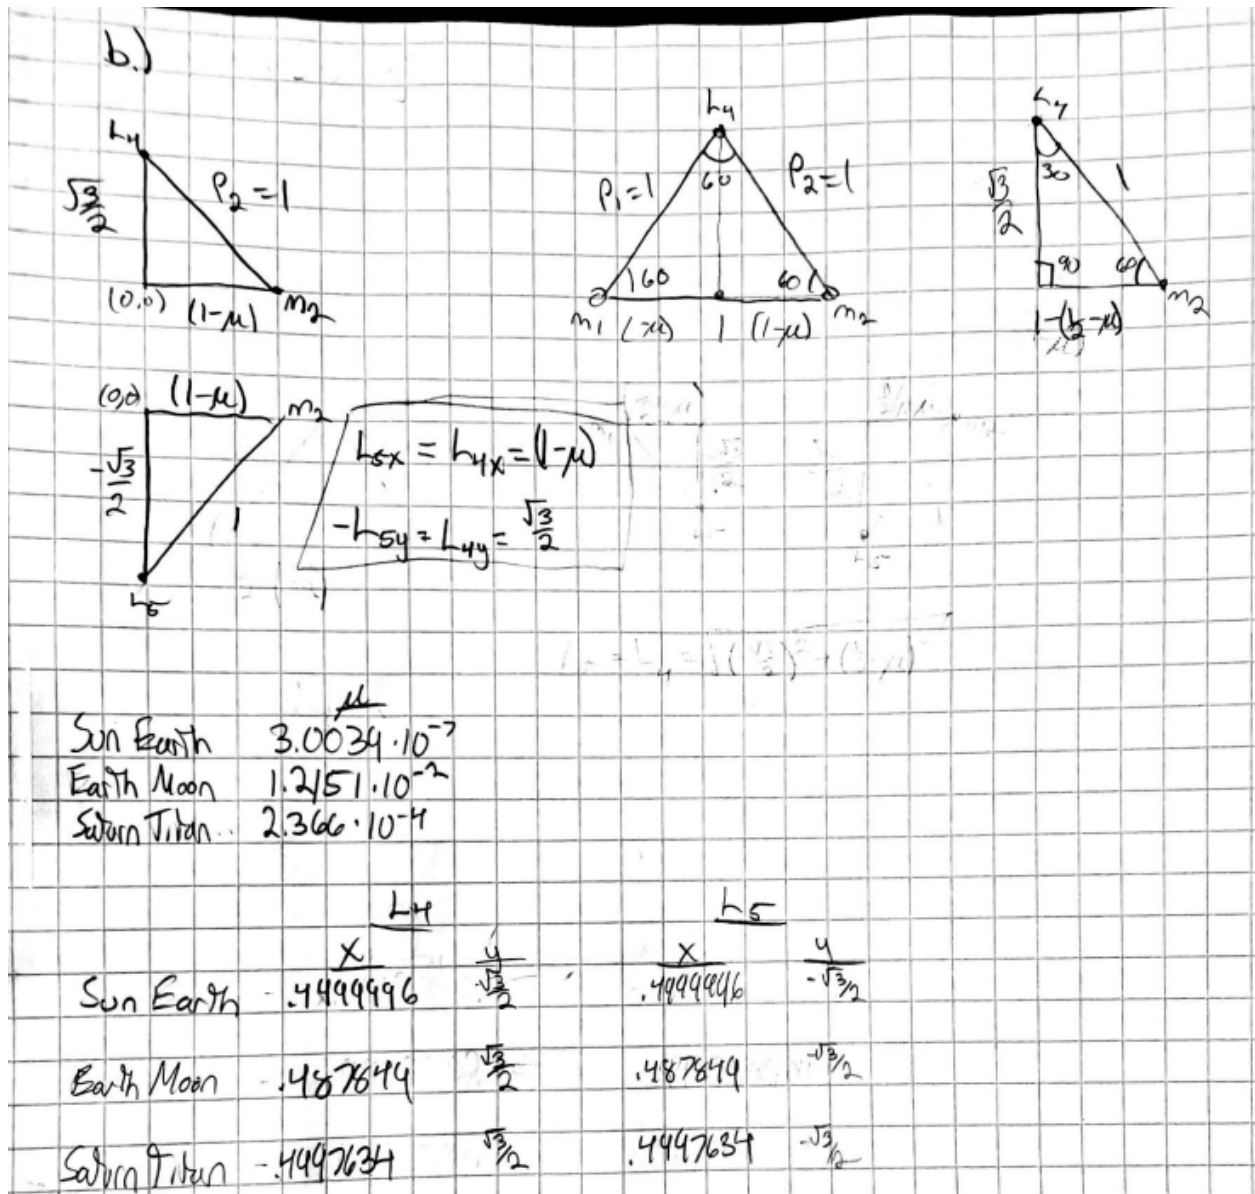 b.)
L4
√3/2
ρ₂=1
(0,0) (1-μ) m₂
L4
60
ρ₁=1
ρ₂=1
60
60
m₁ (-μ) 1 (1-μ) m₂
L4
30
√3/2
1
90
60
m₂
1-(½-μ)
(0,0) (1-μ) m₂
-√3/2
1
L5
L5x = L4x = (1-μ)
-L5y = L4y = √3/2
μ
Sun Earth 3.0034·10⁻⁷
Earth Moon 1.2151·10⁻²
Saturn Titan 2.366·10⁻⁴
L4 L5
x y x y
Sun Earth .4999996 √3/2 .4999996 -√3/2
Earth Moon .487849 √3/2 .487849 -√3/2
Saturn Titan .4997634 √3/2 .4997634 -√3/2